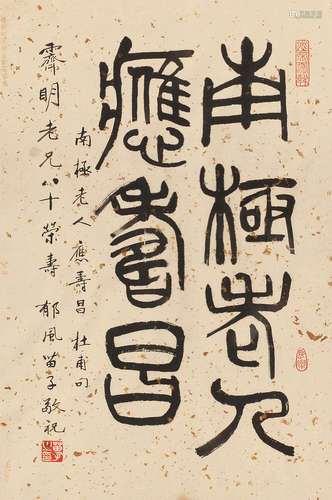 南極老人
應壽昌
南極老人應壽昌 杜甫句
霽明老兄八十榮壽 郁風苗子敬祝